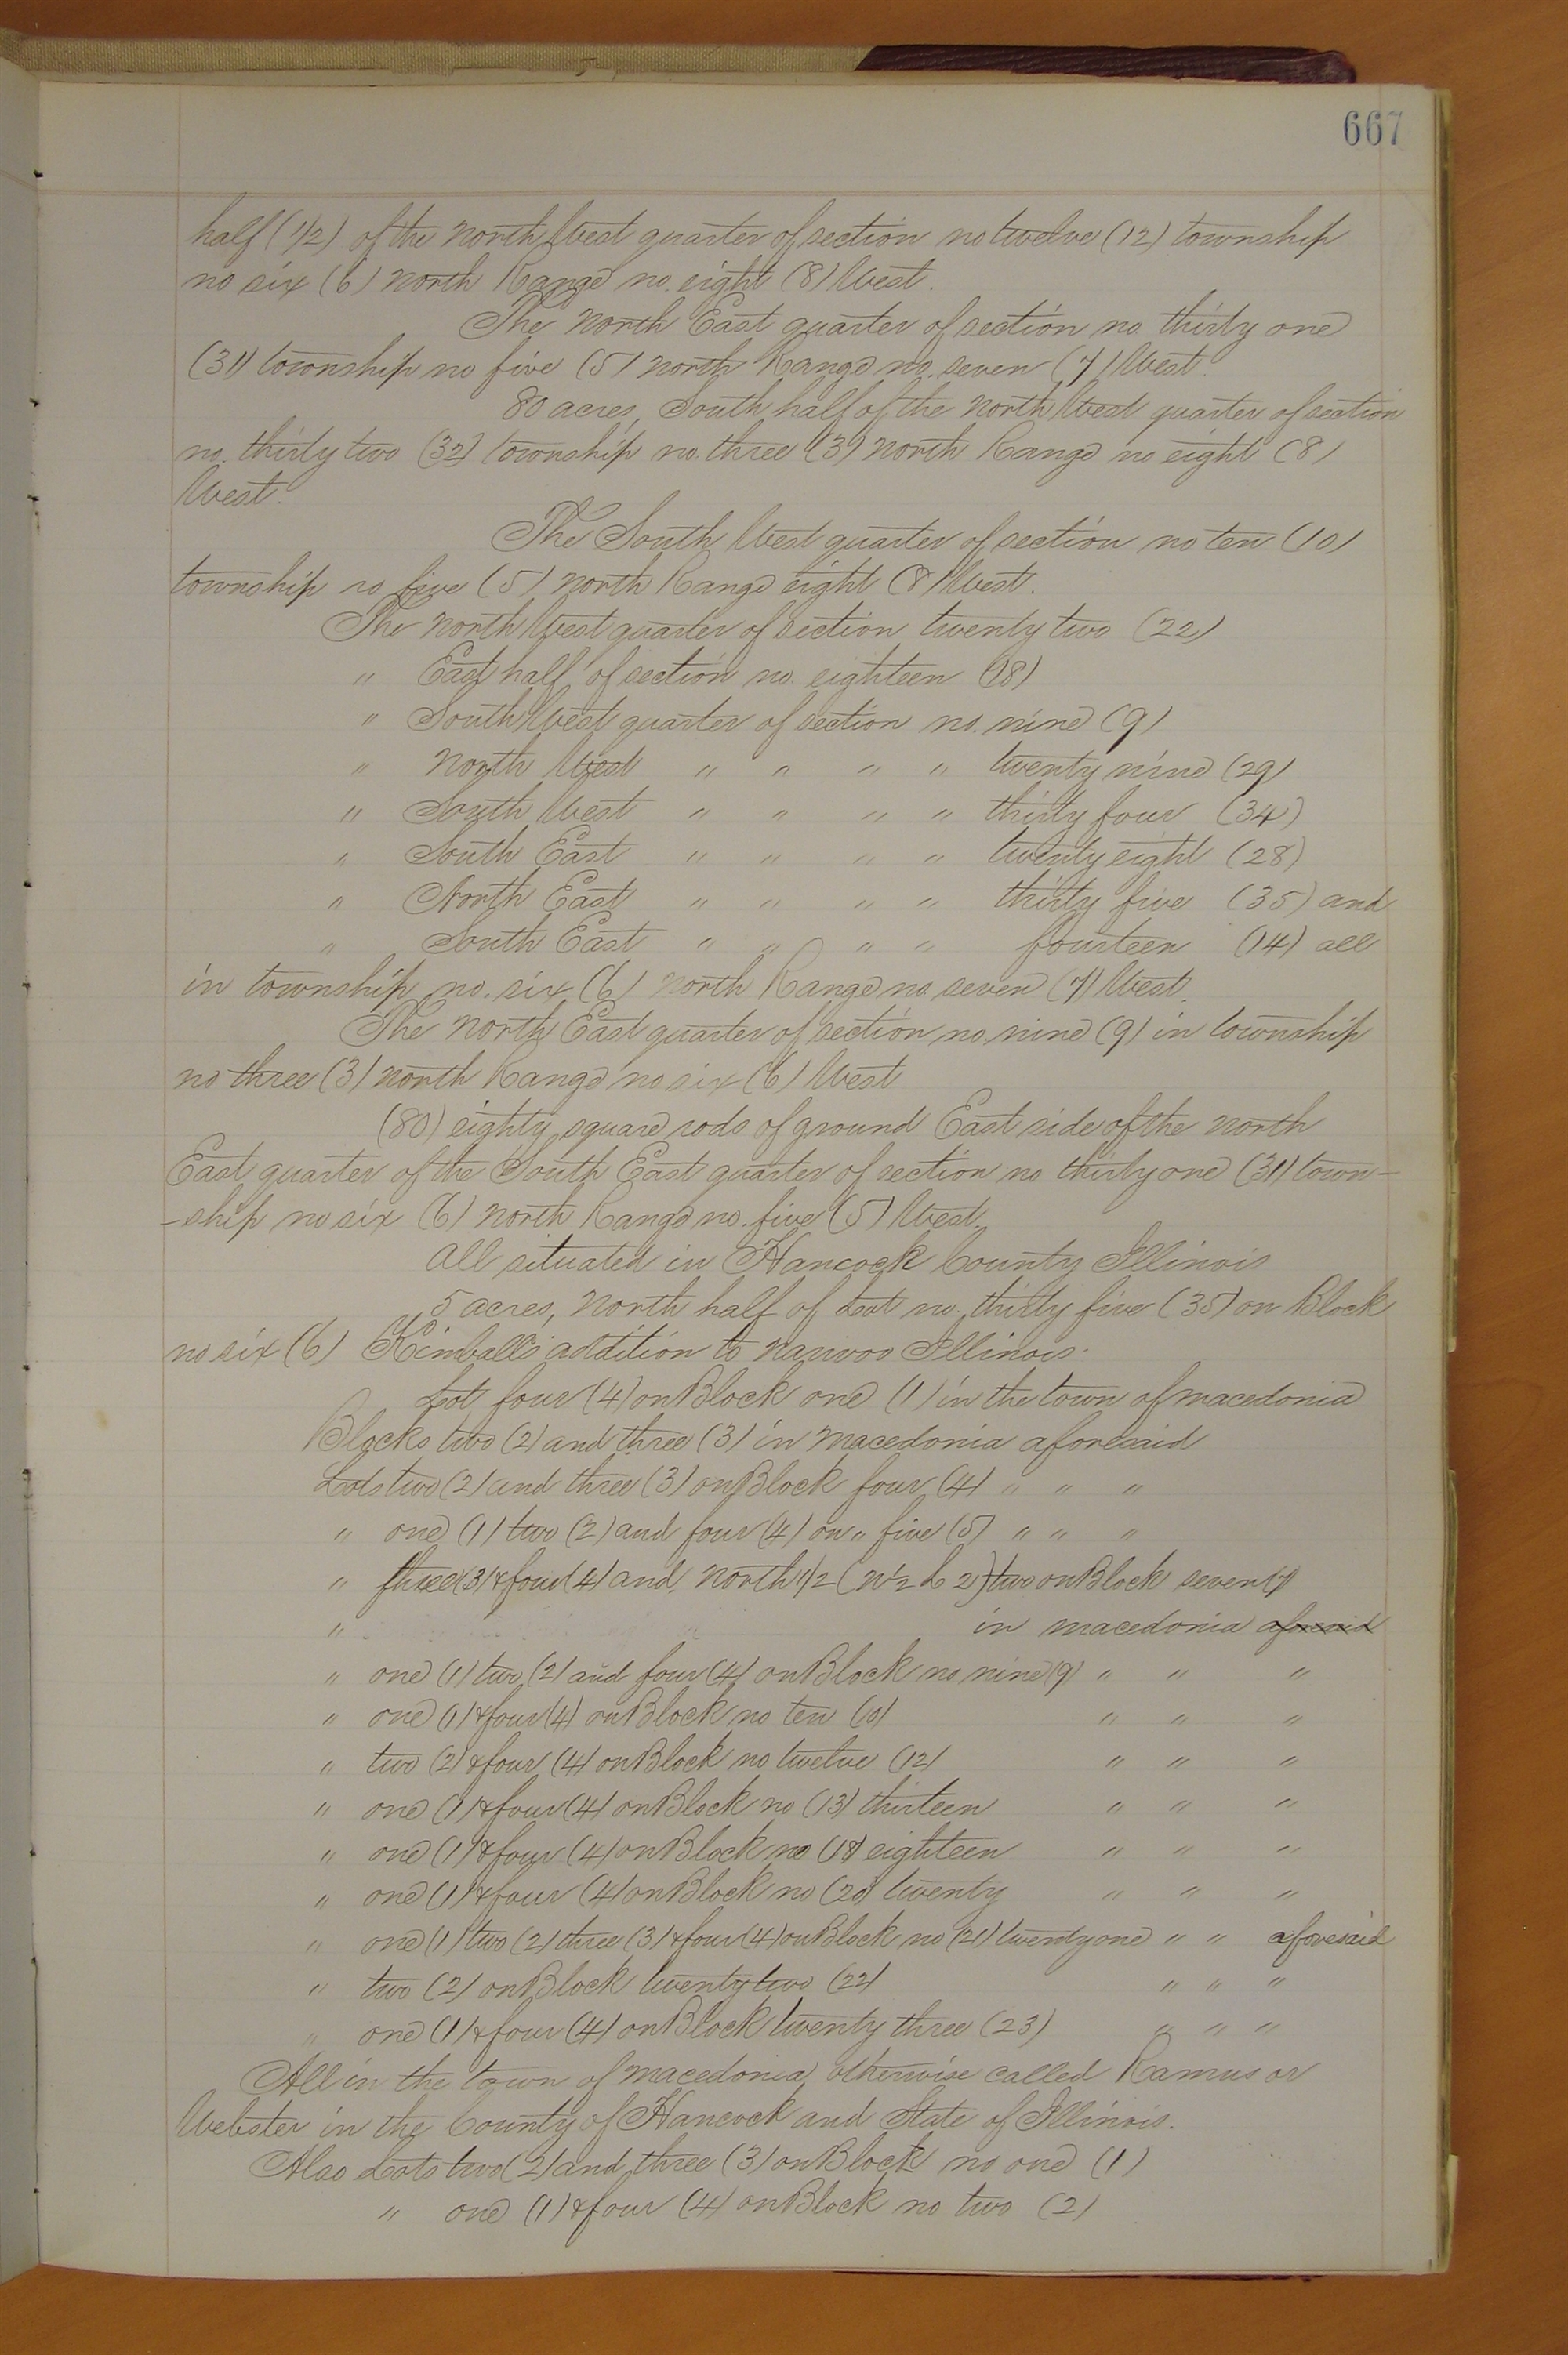 667
half (1/2) of the north West quarter of section no twelve (12) township
no six (6) north Range no. eight (8) West.
The north East quarter of section no. thirty one
(31) township no five (5) north Range no. seven (7) West.
80 acres, South half of the north West quarter of section
no. thirty two (32) township no. three (3) north Range no eight (8)
West.
The South West quarter of section no ten (10)
township no five (5) north Range eight (8) West.
The north West quarter of section twenty two (22)
" East half of section no. eighteen (18)
" South West quarter of section no. nine (9)
" north West " " " " twenty nine (29)
" South West " " " " thirty four (34)
" South East " " " " twenty eight (28)
" North East " " " " thirty five (35) and
" South East " " " " fourteen (14) all
in township no. six (6) north Range no seven (7) West.
The north East quarter of section no. nine (9) in township
no three (3) north Range no six (6) West
(80) eighty square rods of ground East side of the north
East quarter of the South East quarter of section no thirty one (31) town-
-ship no six (6) north Range no. five (5) West.
all situated in Hancock County Illinois
5 acres, north half of Lot no. thirty five (35) on Block
no six (6) Kimball's addition to nauvoo Illinois.
Lot four (4) on Block one (1) in the town of macedonia
Blocks two (2) and three (3) in macedonia aforesaid
Lots two (2) and three (3) on Block four (4) " " "
" one (1) two (2) and four (4) on " five (5) " " "
" three (3) & four (4) and north 1/2 (n 1/2 L 2) two on Block seven (7)
" in macedonia aforesaid
" one (1) two (2) and four (4) on Block no nine (9) " " "
" one (1) & four (4) on Block no ten (10) " " "
" two (2) & four (4) on Block no twelve (12) " " "
" one (1) & four (4) on Block no (13) thirteen " " "
" one (1) & four (4) on Block no (18) eighteen " " "
" one (1) & four (4) on Block no (20) twenty " " "
" one (1) two (2) three (3) & four (4) on Block no (21) twenty one " " aforesaid
" two (2) on Block twenty two (22) " " "
" one (1) & four (4) on Block twenty three (23) " " "
All in the town of macedonia, otherwise called Ramus or
Webster in the County of Hancock and State of Illinois.
Also Lots two (2) and three (3) on Block no one (1)
" one (1) & four (4) on Block no two (2)